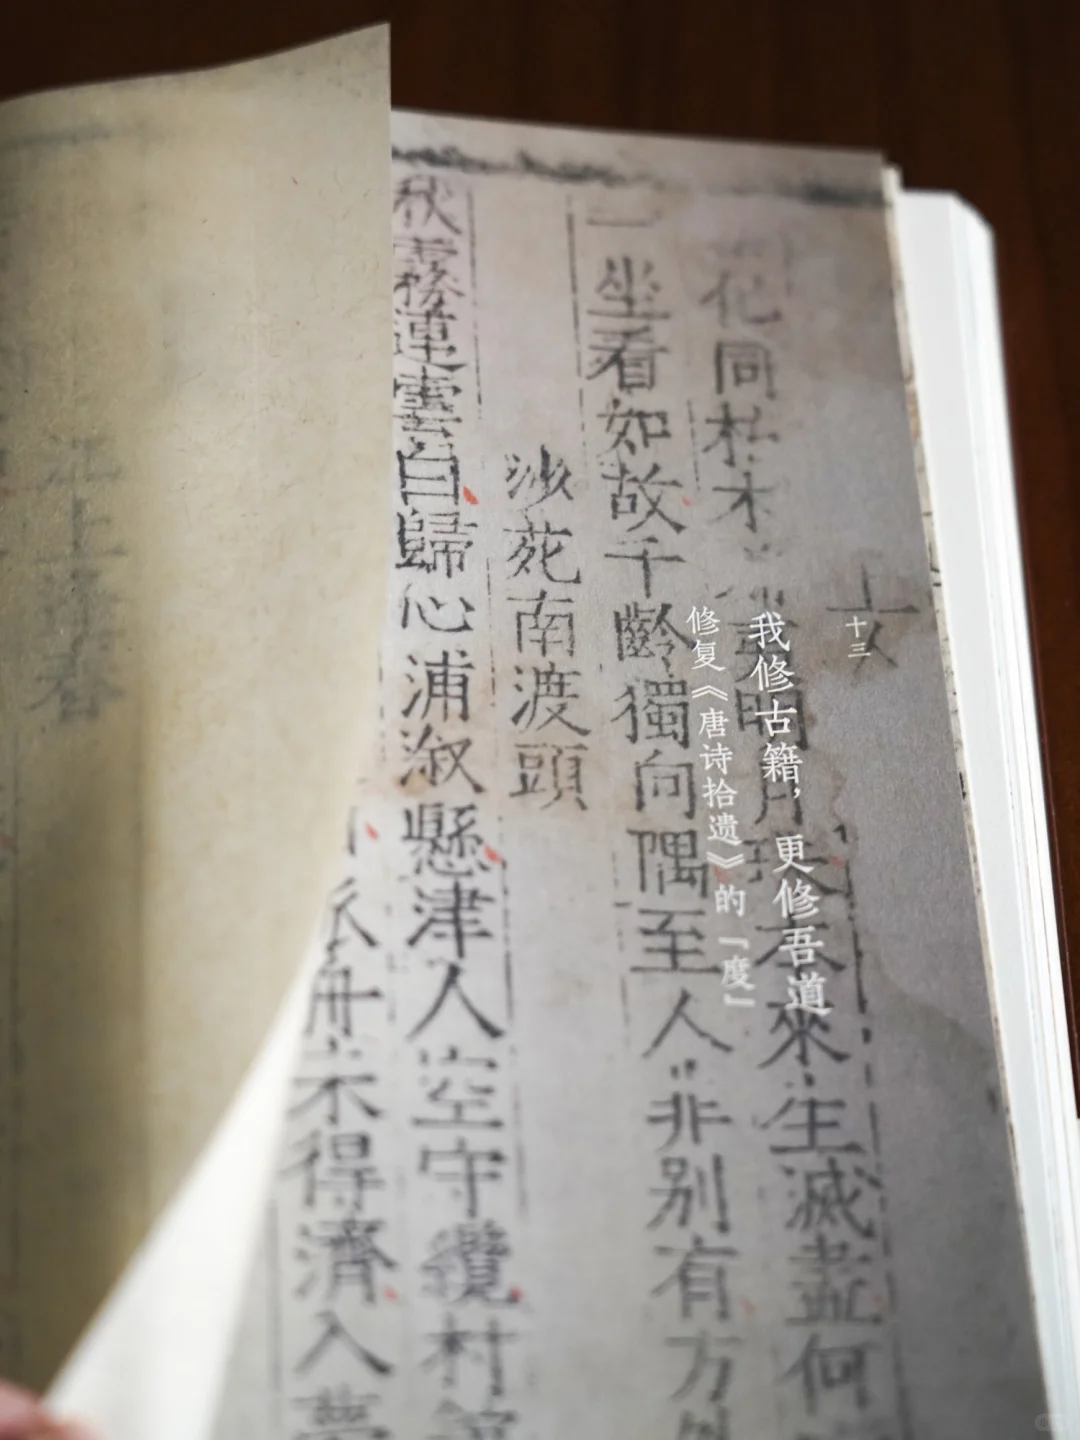 十三
我修古籍，更修吾道
修复《唐诗拾遗》的「度」
花同
木
明月
本來生滅盡何
一坐看如故千齡獨向隅至人非別有方外
沙苑南渡頭
秋霧連雲白歸心浦溆懸津人空守纜村
不得濟入夢
江上
春